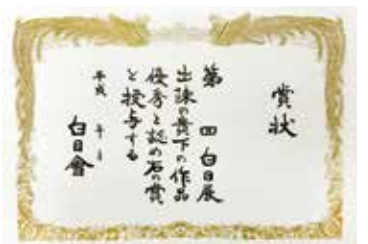 賞状
第　四 白日展
出諌の貴下の作品
優秀と認め右の賞
を授与する
平成　年　月
白日會